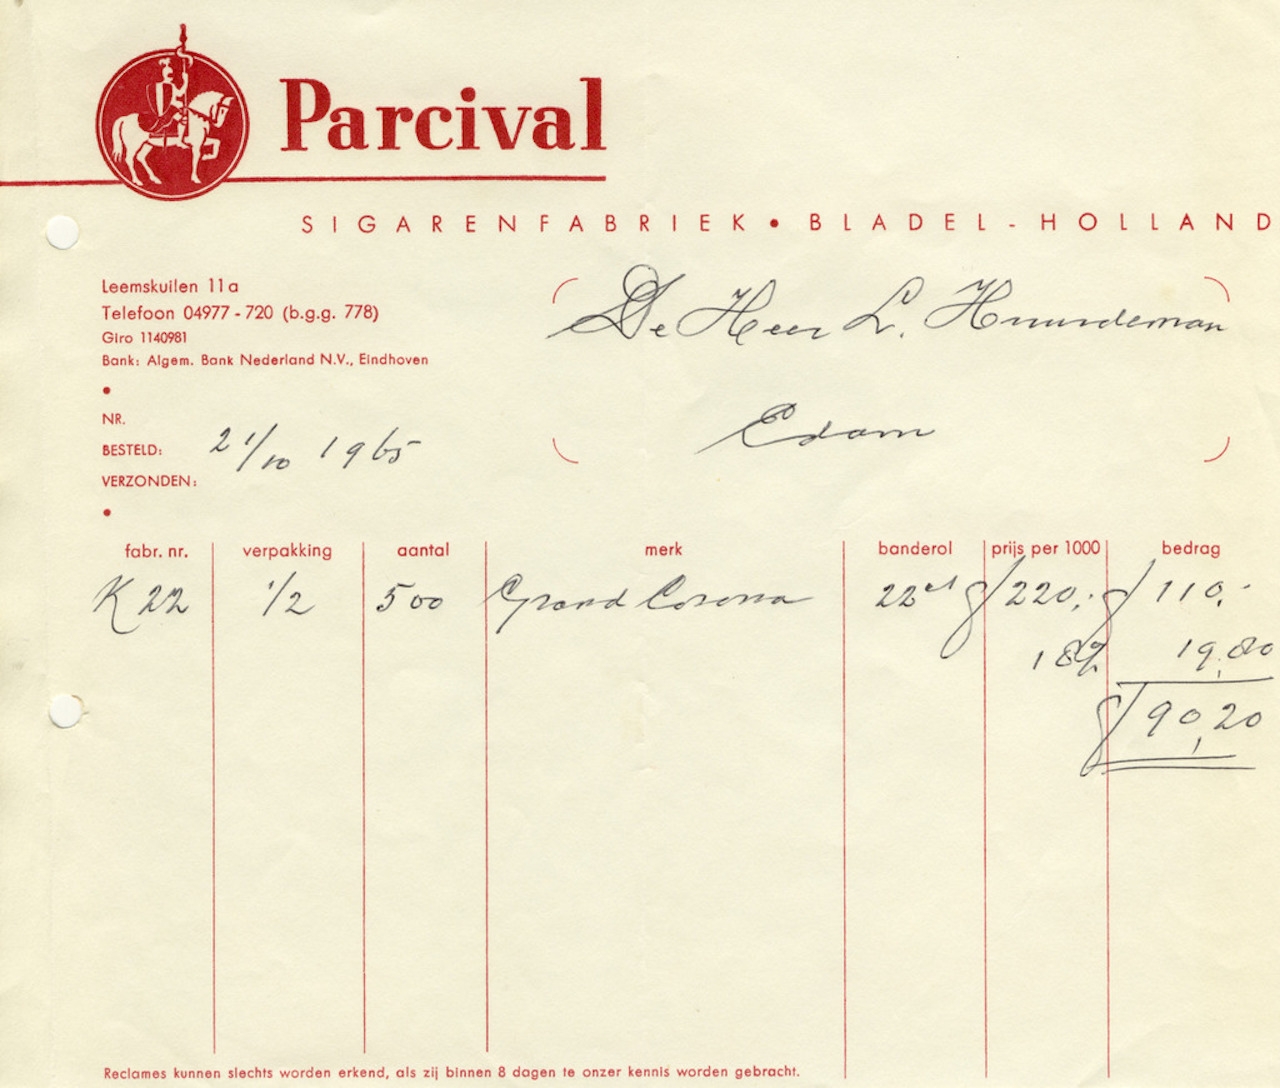 Parcival
SIGARENFABRIEK • BLADEL - HOLLAND
Leemskuilen 11a
Telefoon 04977 - 720 (b.g.g. 778)
Giro 1140981
Bank: Algem. Bank Nederland N.V., Eindhoven
De Heer L.
Edam
NR.
BESTELD: 21/10 1965
VERZONDEN:
fabr. nr. verpakking aantal merk banderol prijs per 1000 bedrag
K 22 1/2 500 Grand Corona 22ct ƒ 220,- ƒ 110,-
18% 19,80
ƒ 90,20
Reclames kunnen slechts worden erkend, als zij binnen 8 dagen te onzer kennis worden gebracht.